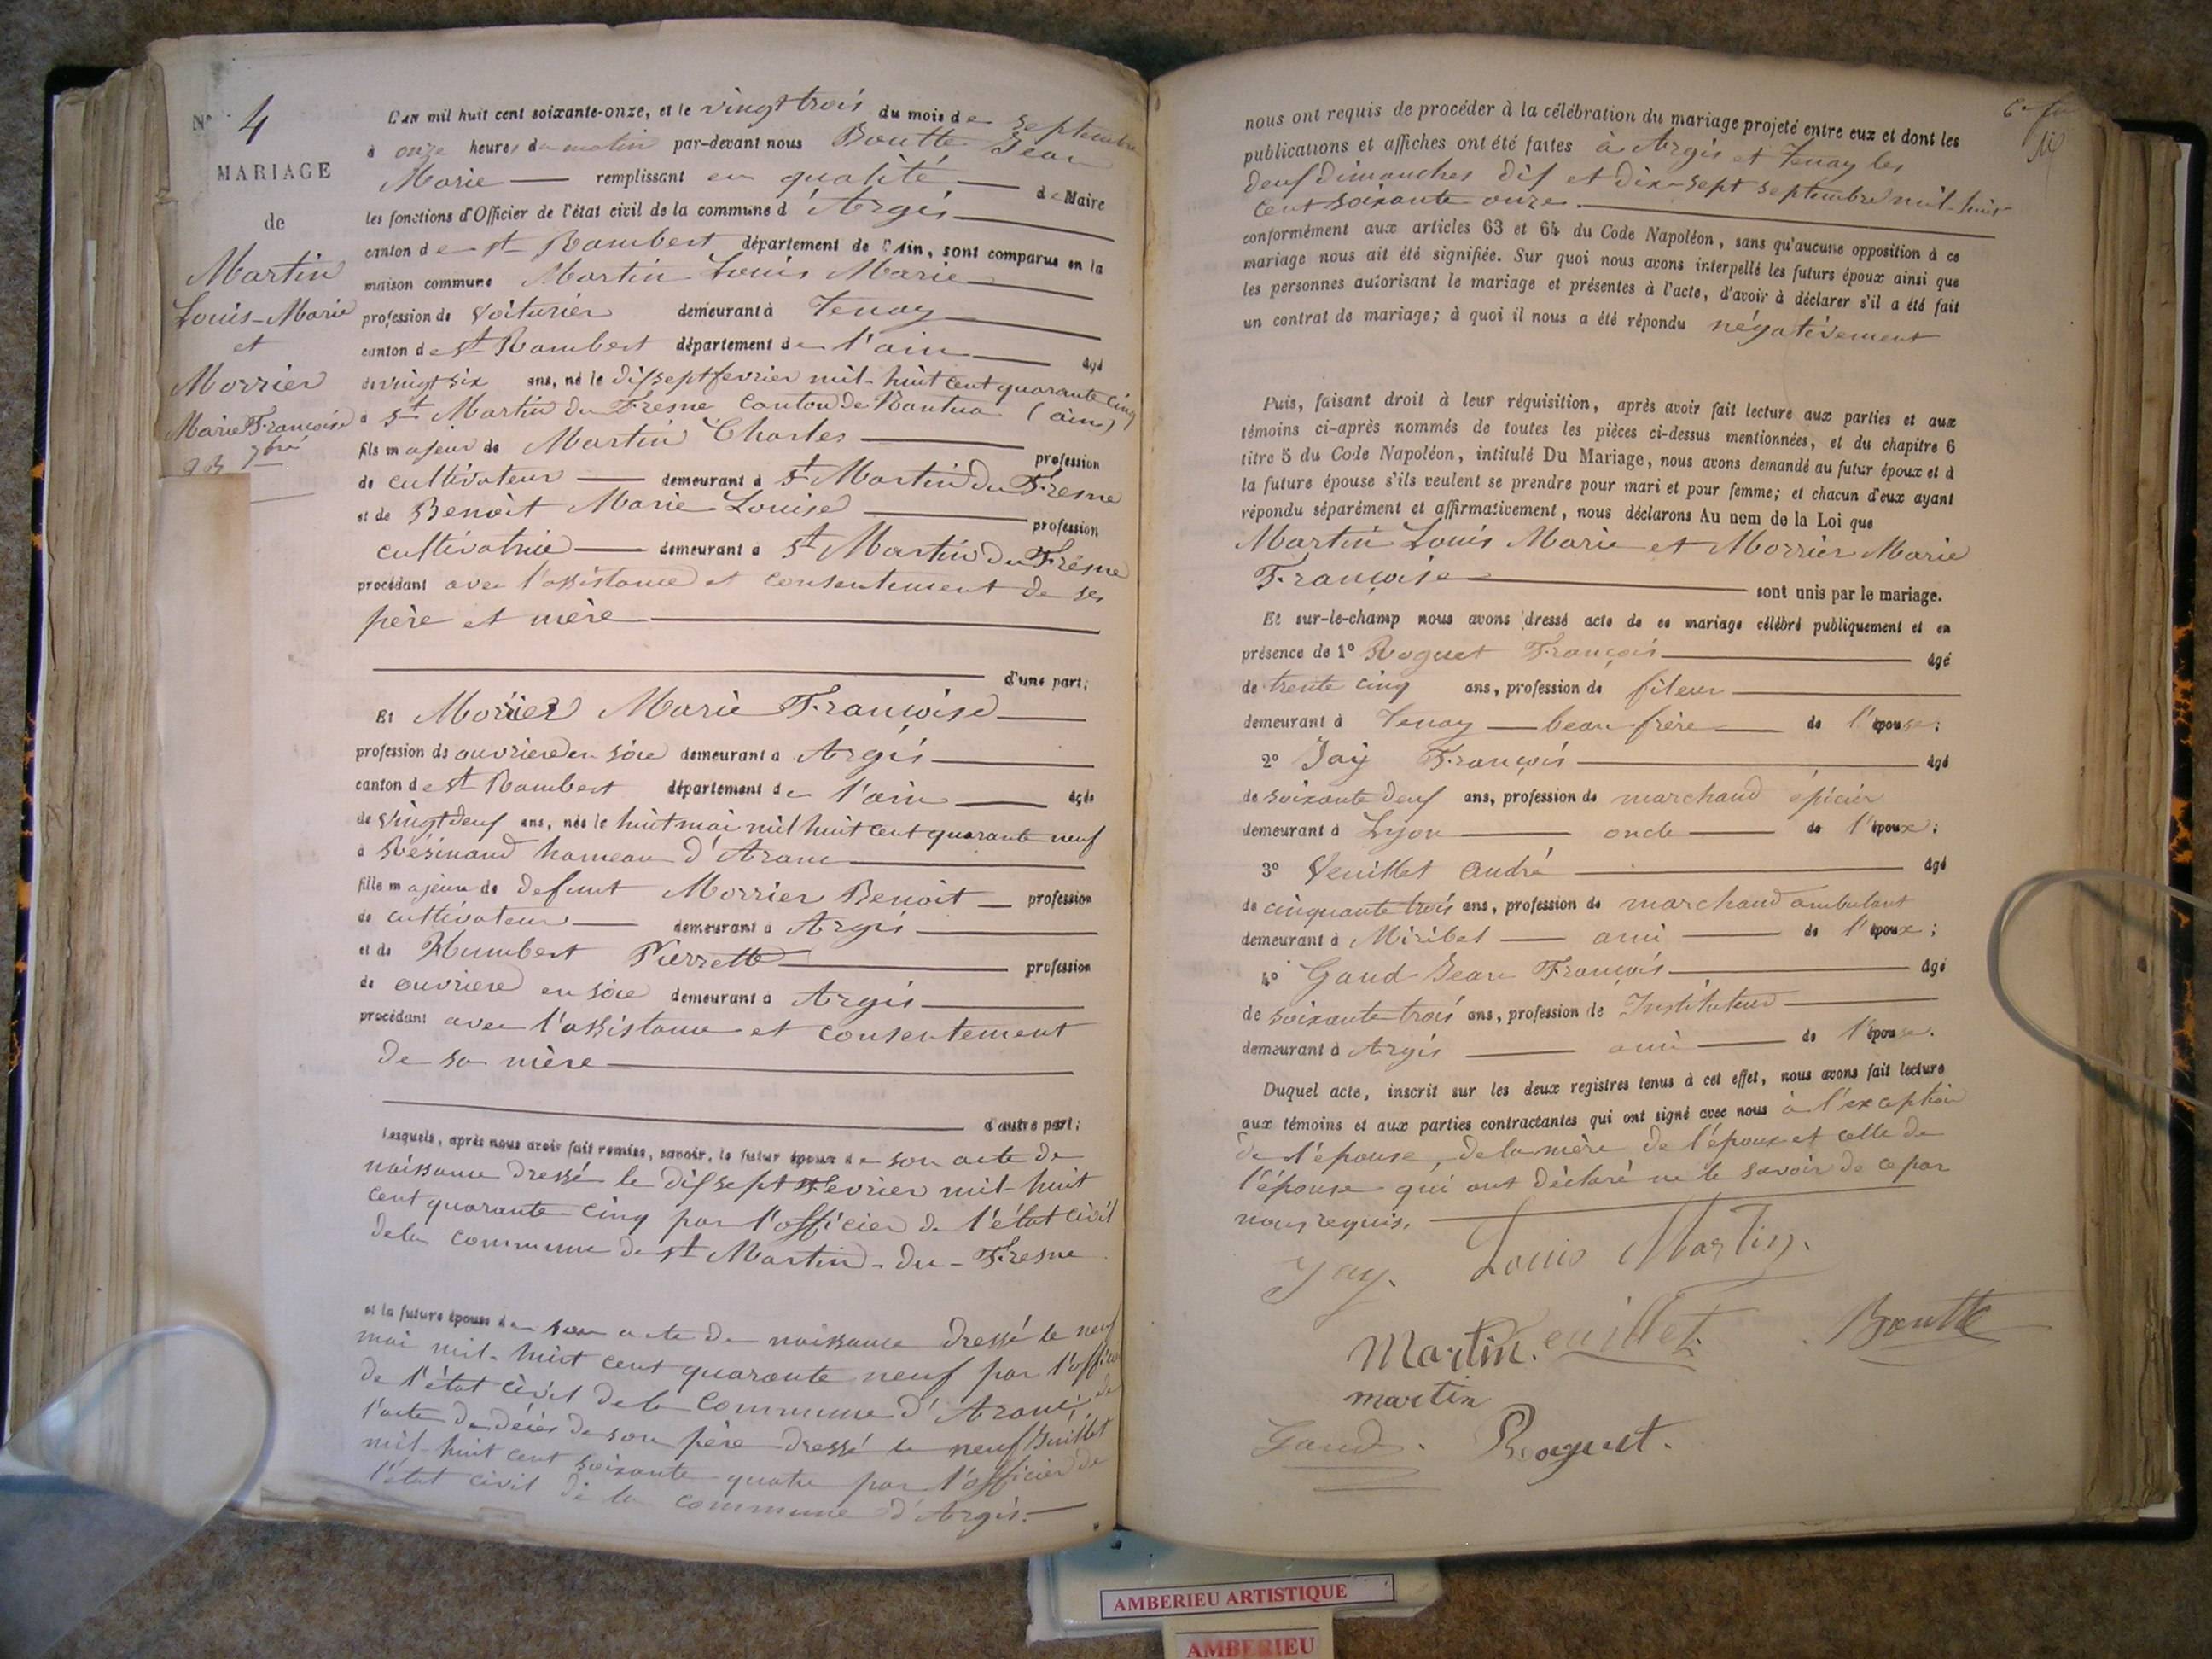 N° 4
MARIAGE
de
Martin
Louis-Marie
et
Morrier
Marie Françoise
23 7bre
L'an mil huit cent soixante-onze, et le vingt trois du mois de septembre
à onze heures du matin par-devant nous Boutte Jean
Marie remplissant en qualité de Maire
les fonctions d'Officier de l'état civil de la commune d'Argis
canton de st Rambert département de l'Ain, sont comparus en la
maison commune Martin Louis Marie
profession de voiturier demeurant à Tenay
canton de st Rambert département de l'ain âgé
de vingt six ans, né le dif sept fevrier mil-huit cent quarante cinq
à st Martin du Fresne canton de Nantua (ain)
fils majeur de Martin Charles profession
de cultivateur demeurant à st Martin du Fresne
et de Benoit Marie Louise profession
cultivatrice demeurant à st Martin du Fresne
procédant avec l'assistance et consentement de ses
père et mère
d'une part;
Et Morrier Marie Françoise
profession de ouvriere en soie demeurant à Argis
canton de st Rambert département de l'ain âgée
de vingt deuf ans, née le huit mai mil huit cent quarante neuf
à Résinand hameau d'Aranc
fille majeure de defunt Morrier Benoit profession
de cultivateur demeurant à Argis
et de Humbert Pierrette profession
de ouvriere en soie demeurant à Argis
procédant avec l'assistance et consentement
de sa mère
d'autre part;
Lesquels, après nous avoir fait remise, savoir, le futur époux de son acte de
naissance dressé le dif sept Fevrier mil-huit
cent quarante-cinq par l'officier de l'état civil
de la commune de st Martin-du-Fresne
et la future épouse de son acte de naissance dressé le neuf
mai mil-huit cent quarante neuf par l'officier
de l'état civil de la Commune d'Aranc, de
l'acte de décès de son père dressé le neuf Juillet
mil-huit cent soixante quatre par l'officier de
l'état civil de la commune d'Argis.
nous ont requis de procéder à la célébration du mariage projeté entre eux et dont les
publications et affiches ont été faites à Argis et Tenay les
deuf dimanches dif et dix-sept septembre mil-huit
cent soixante onze.
conformément aux articles 63 et 64 du Code Napoléon, sans qu'aucune opposition à ce
mariage nous ait été signifiée. Sur quoi nous avons interpellé les futurs époux ainsi que
les personnes autorisant le mariage et présentes à l'acte, d'avoir à déclarer s'il a été fait
un contrat de mariage; à quoi il nous a été répondu négativement
Puis, faisant droit à leur réquisition, après avoir fait lecture aux parties et aux
témoins ci-après nommés de toutes les pièces ci-dessus mentionnées, et du chapitre 6
titre 5 du Code Napoléon, intitulé Du Mariage, nous avons demandé au futur époux et à
la future épouse s'ils veulent se prendre pour mari et pour femme; et chacun d'eux ayant
répondu séparément et affirmativement, nous déclarons Au nom de la Loi que
Martin Louis Marie et Morrier Marie
Françoise sont unis par le mariage.
Et sur-le-champ nous avons dressé acte de ce mariage célébré publiquement et en
présence de 1° Roguet François âgé
de trente cinq ans, profession de fileur
demeurant à Tenay beau-frère de l'épouse;
2° Jay François âgé
de soixante deuf ans, profession de marchand épicier
demeurant à Lyon oncle de l'époux;
3° Veuillet André âgé
de cinquante trois ans, profession de marchand ambulant
demeurant à Miribel ami de l'époux;
4° Gaud Jean François âgé
de soixante trois ans, profession de Instituteur
demeurant à Argis ami de l'épouse.
Duquel acte, inscrit sur les deux registres tenus à cet effet, nous avons fait lecture
aux témoins et aux parties contractantes qui ont signé avec nous à l'exception
de l'épouse, de la mère de l'époux et celle de
l'épouse qui ont déclaré ne le savoir de ce par
nous requis.
Jay. Louis Martin.
Martin. Veuillet. Boutte
martin
Gaud. Roguet.
AMBERIEU ARTISTIQUE
AMBERIEU